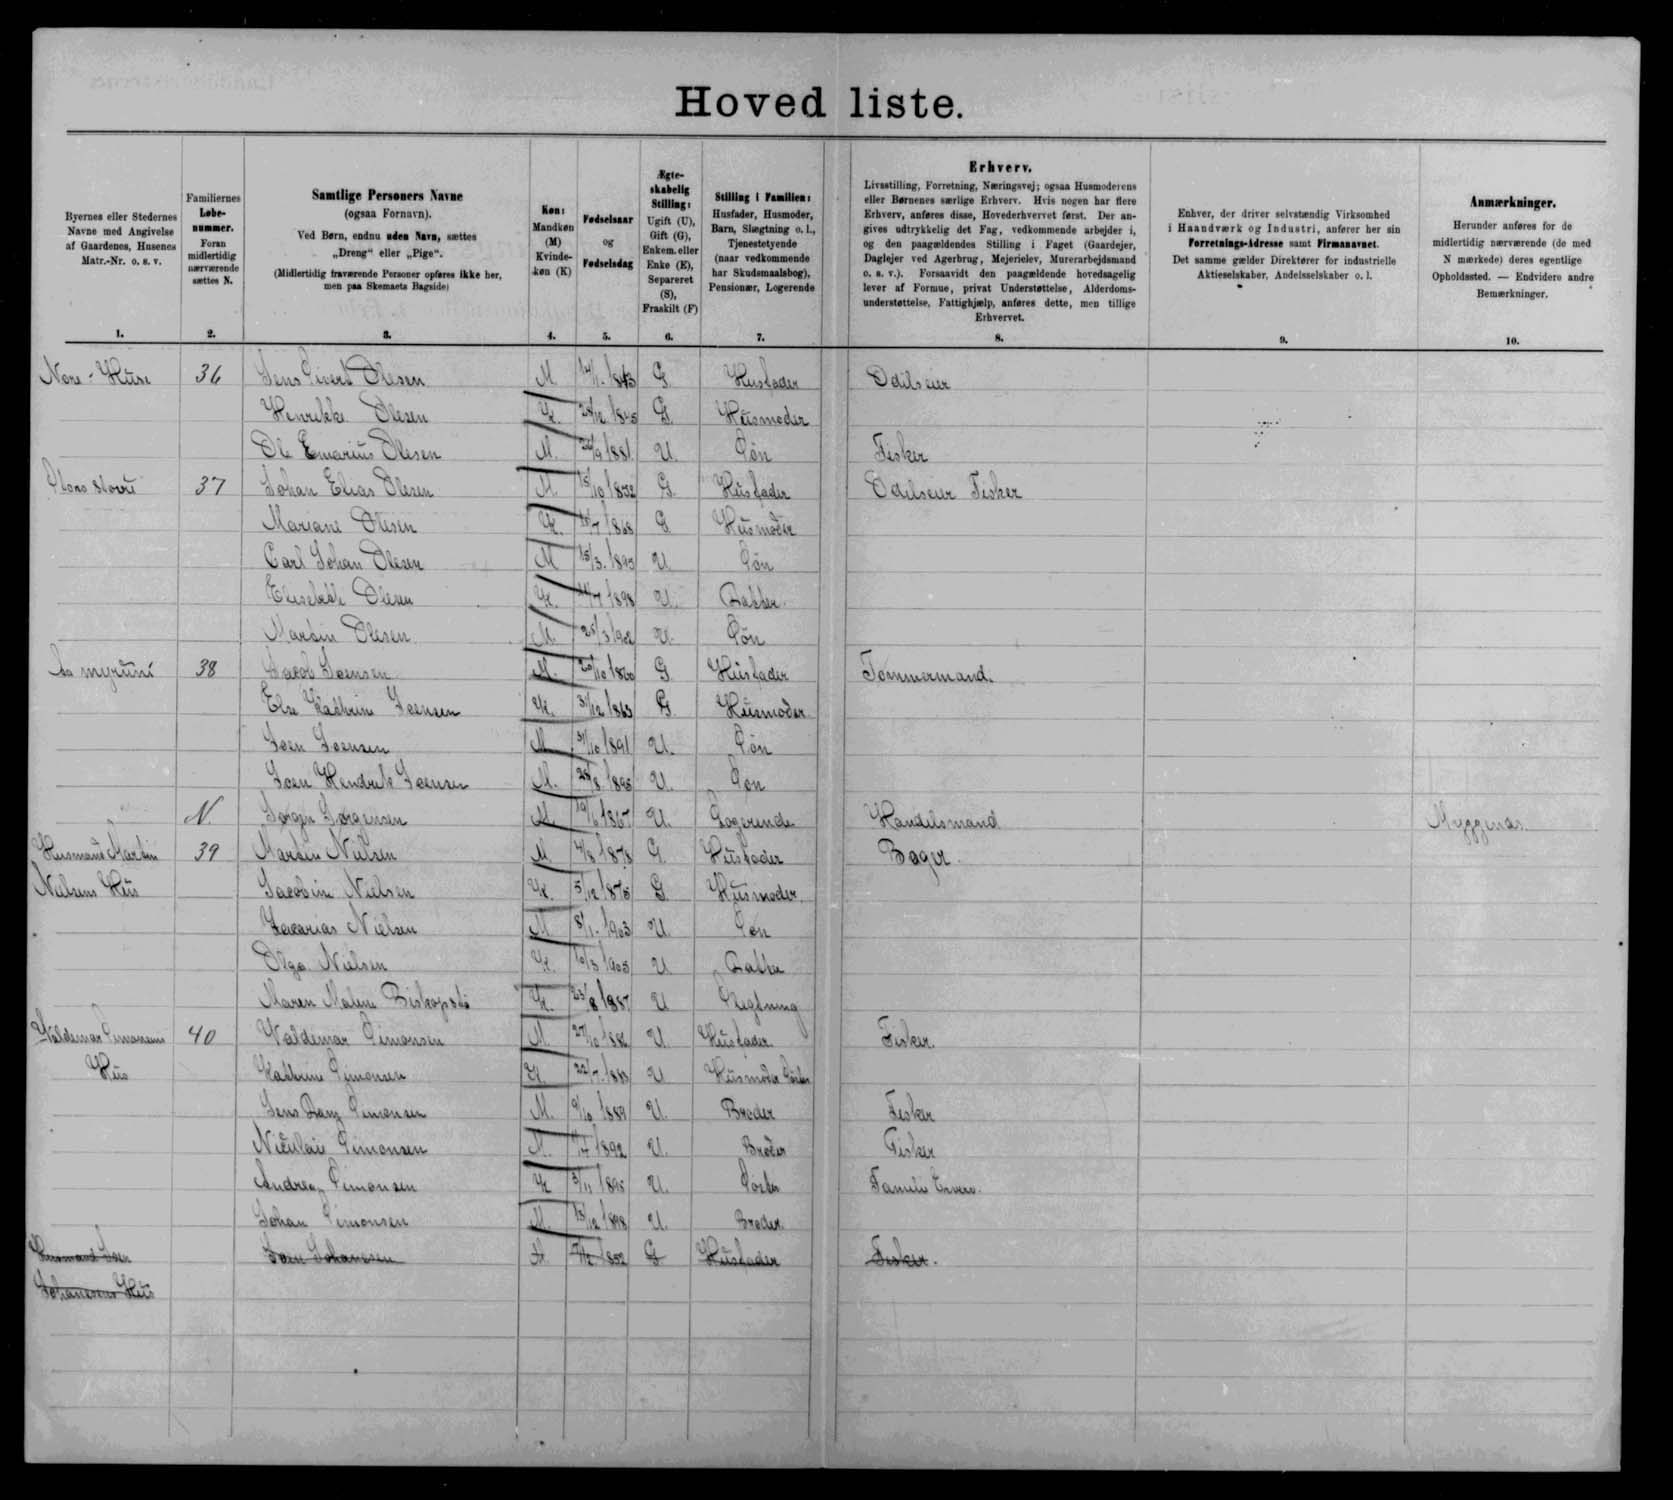 Hovedliste.
Byernes eller Stedernes
Navne med Angivelse
af Gaardenes, Husenes
Matr.-Nr. o. s. v.
1.
Familiernes
Løbe-
nummer.
Foran
midlertidig
nærværende
sættes N.
2.
Samtlige Personers Navne
(ogsaa Fornavn).
Ved Børn, endnu uden Navn, sættes
„Dreng“ eller „Pige“.
(Midlertidig fraværende Personer opføres ikke her,
men paa Skemaets Bagside)
3.
Køn:
Mandkøn
(M)
Kvinde-
køn (K)
4.
Fødselsaar
og
Fødselsdag
5.
Ægte-
skabelig
Stilling:
Ugift (U),
Gift (G),
Enkem. eller
Enke (E),
Separeret
(S),
Fraskilt (F)
6.
Stilling i Familien:
Husfader, Husmoder,
Barn, Slægtning o. l.,
Tjenestetyende
(naar vedkommende
har Skudsmaalsbog),
Pensionær, Logerende
7.
Erhverv.
Livsstilling, Forretning, Næringsvej; ogsaa Husmoderens
eller Børnenes særlige Erhverv. Hvis nogen har flere
Erhverv, anføres disse, Hovederhvervet først. Der an-
gives udtrykkelig det Fag, vedkommende arbejder i,
og den paagældendes Stilling i Faget (Gaardejer,
Daglejer ved Agerbrug, Mejerielev, Murerarbejdsmand
o. s. v.). Forsaavidt den paagældende hovedsagelig
lever af Formue, privat Understøttelse, Alderdoms-
understøttelse, Fattighjælp, anføres dette, men tillige
Erhvervet.
8.
Enhver, der driver selvstændig Virksomhed
i Haandværk og Industri, anfører her sin
Forretnings-Adresse samt Firmanavnet.
Det samme gælder Direktører for industrielle
Aktieselskaber, Andelsselskaber o. l.
9.
Anmærkninger.
Herunder anføres for de
midlertidig nærværende (de med
N mærkede) deres egentlige
Opholdssted. — Endvidere andre
Bemærkninger.
10.
36 Jens Sivert Olesen M 1843 G. Husfader Odelseier
Henrikke Olesen K. G. Husmoder
Ole Emarius Olesen M. 1881 U. Søn Fisker
37 Johan Elias Olesen M. 15/10 1852 G. Husfader Odelseier Fisker
Mariane Olesen K. 1868 G. Husmoder
Carl Johan Olesen M 15/3. 1893 U. Søn
Elisebeth Olesen K. 1898 U. Datter.
Martin Olesen M. U. Søn
38 Jacob Joensen M. 20/10 1860 G. Husfader Tømmermand.
Else Kathrine Joensen K. 31/12 1863 G. Husmoder.
Joen Joensen M 1891 U. Søn
Joen Hendrik Joensen M. 1895 U. Søn
N. Jørgen Jørgensen M 1867 U. Logerende Handelsmand Myggenæs.
Husmand Martin 39 Martin Nielsen M 4/8 1878 G. Husfader Bager.
Nielsens Hus Jacobine Nielsen K. 5/12 1875 G Husmoder.
Zacarias Nielsen M 8/1. 1903 U. Søn
Olga Nielsen K. 10/3 1905 U Datter
Maren Malene Biskopstø K. 23/8 1887 U Slegtning
Valdemar Simonsens 40 Valdemar Simonsen M. 27/10 1882 U Husfader Fisker.
Hus Kathrine Simonsen K 22/7. 1883 U Husmoder Søster
Simonsen M. 9/10 1889 U. Broder Fisker
Nicolai Simonsen M. 1892 U. Broder Fisker
Andrea Simonsen K 3/11 1895 U. Søster
Johan Simonsen M. 13/12 1898 U. Broder.
Husmand Joen Joen Johanesen M. 1852 G Husfader Fisker.
Johanesens Hus